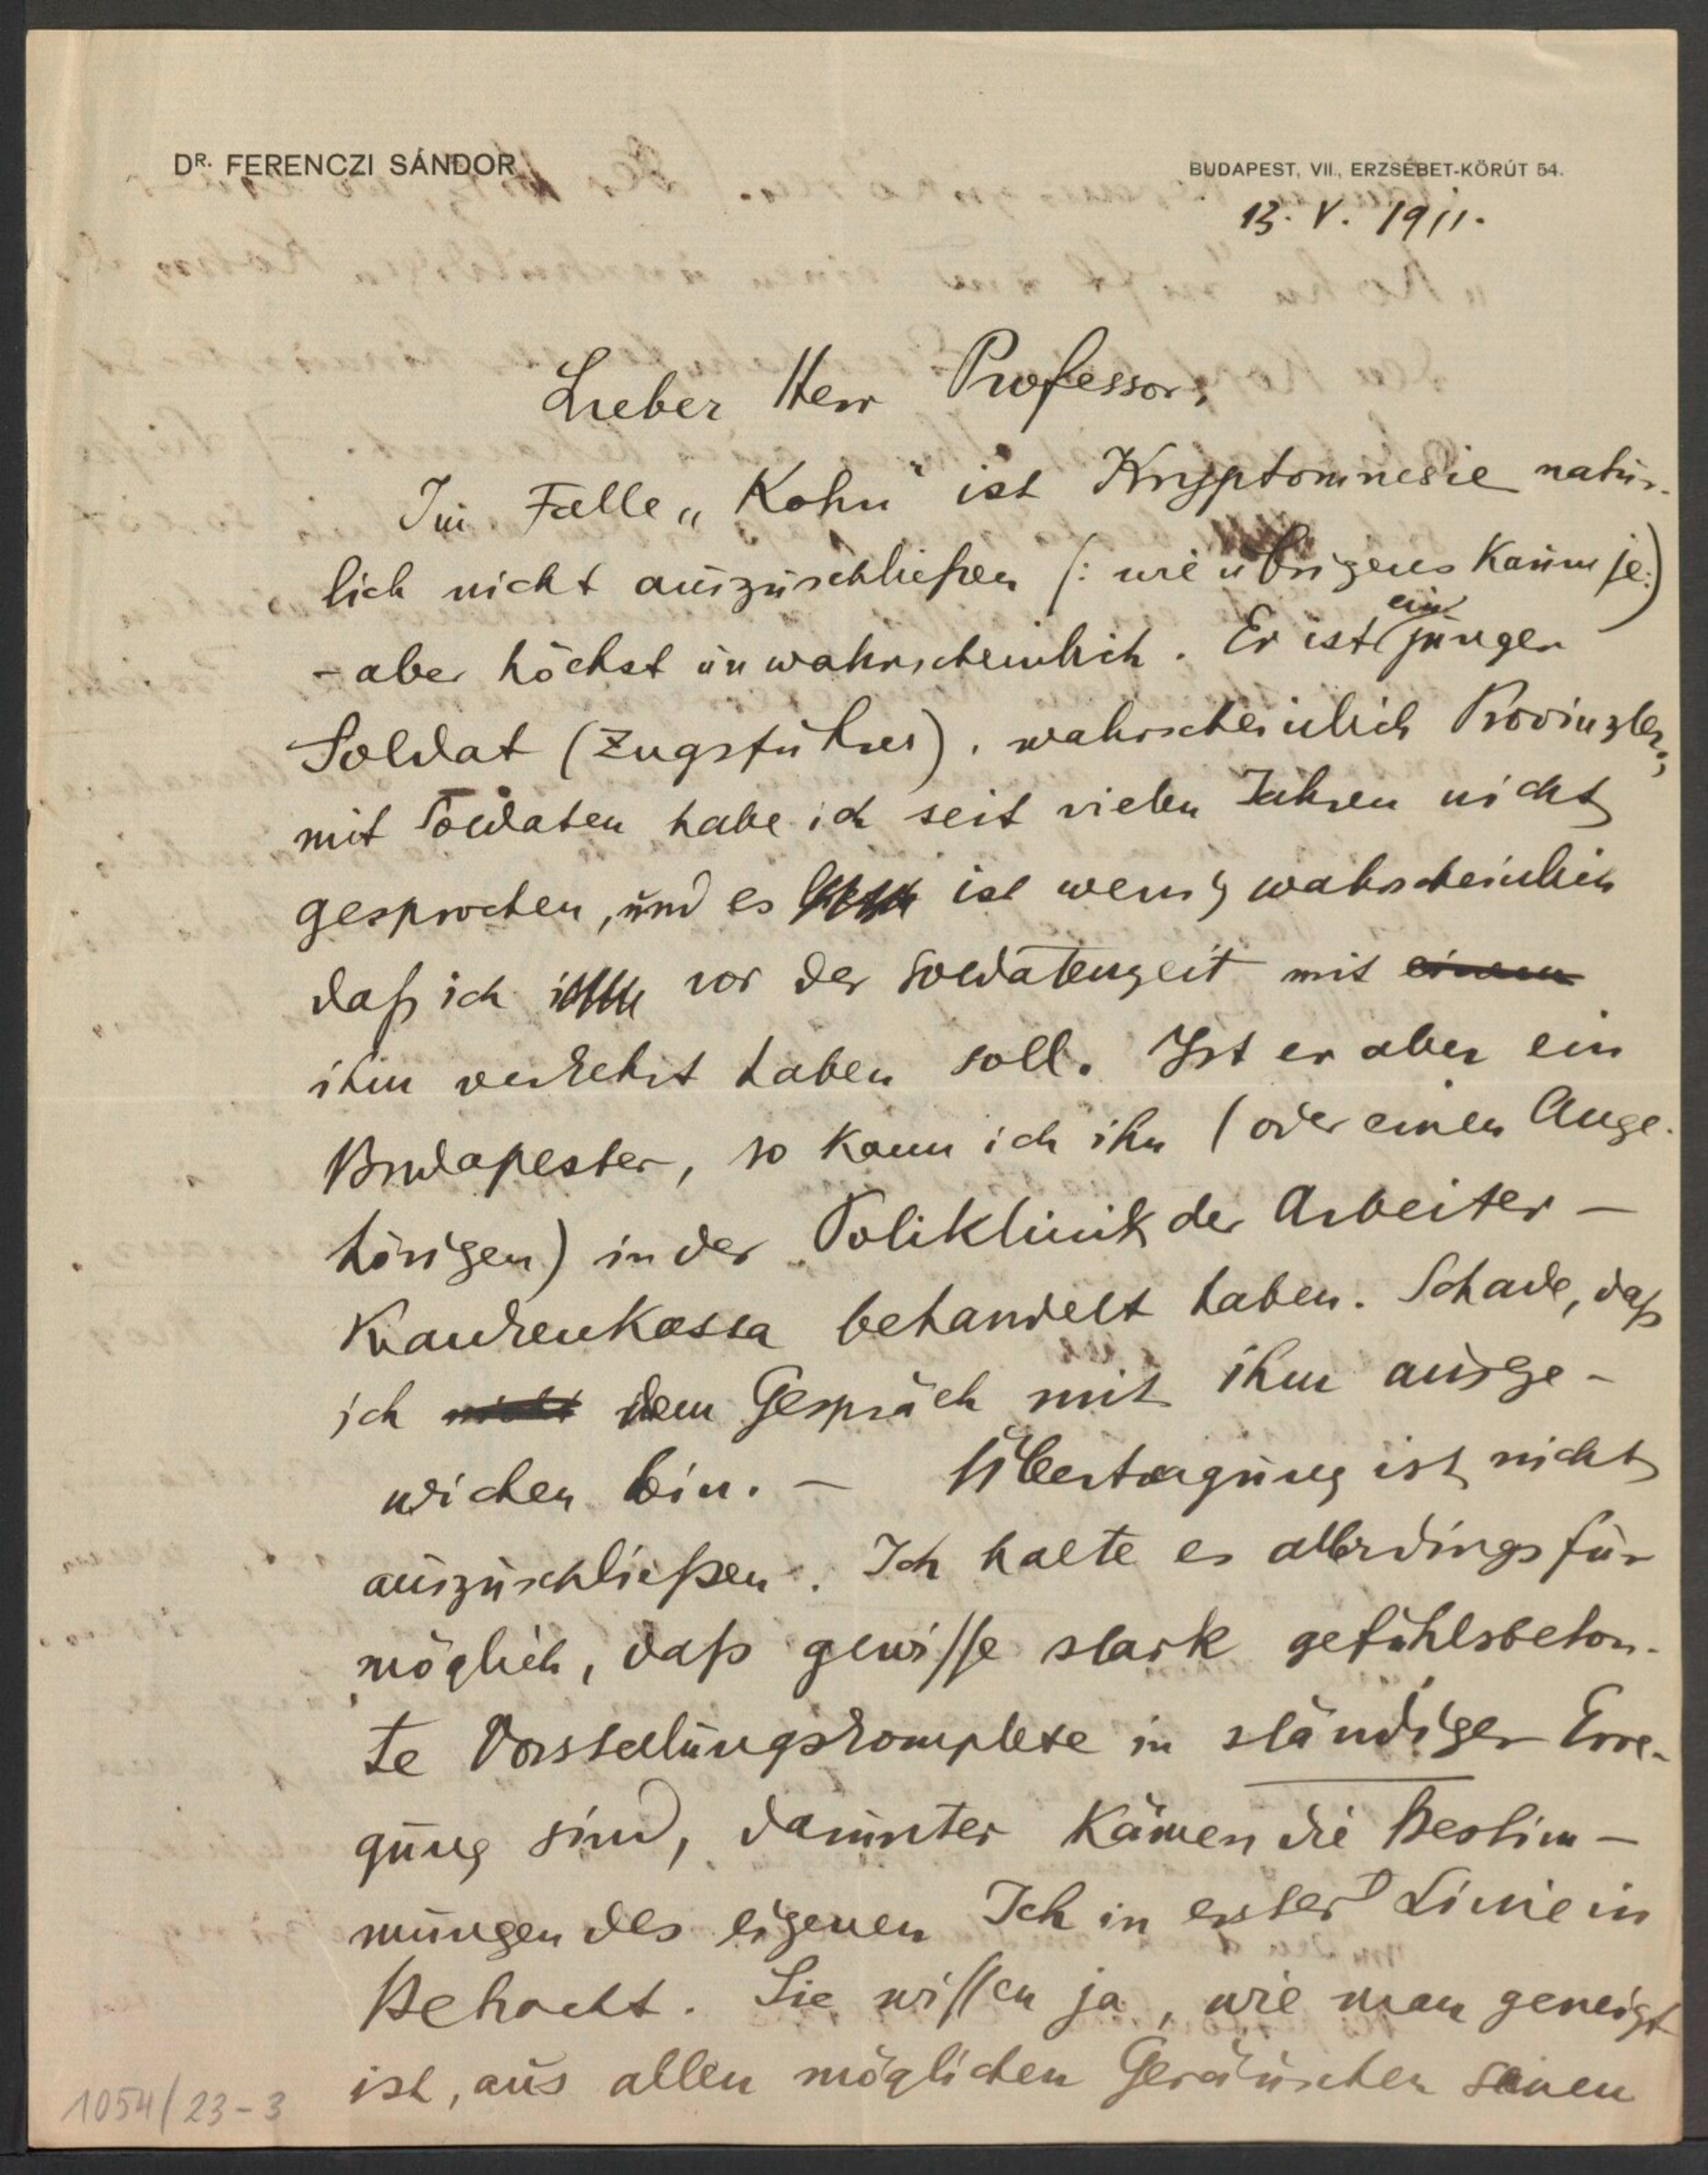 DR. FERENCZI SÁNDOR
BUDAPEST, VII., ERZSÉBET-KÖRÚT 54.
13. V. 1911.
Lieber Herr Professor,
Im Falle „Kohn" ist Kryptomnesie natür-
lich nicht auszuschließen (: wie übrigens kaum je:)
- aber höchst unwahrscheinlich. Er ist ein junger
Soldat (Zugsführer), wahrscheinlich Provinzler;
mit Soldaten habe ich seit vielen Jahren nicht
gesprochen, und es ist wenig wahrscheinlich
daß ich vor der Soldatenzeit mit einem
ihm verkehrt haben soll. Ist er aber ein
Budapester, so kann ich ihn (oder einen Ange-
hörigen) in der Poliklinik der Arbeiter-
Krankenkassa behandelt haben. Schade, daß
ich nicht dem Gespräch mit ihm ausge-
wichen bin. — Übertragung ist nicht
auszuschließen. Ich halte es allerdings für
möglich, daß gewisse stark gefühlsbeton-
te Vorstellungskomplexe in ständiger Erre-
gung sind, darunter kämen die Bestim-
mungen des eigenen Ich in erster Linie in
Betracht. Sie wissen ja, wie man geneigt
ist, aus allen möglichen Geräuschen seinen
1054/23-3